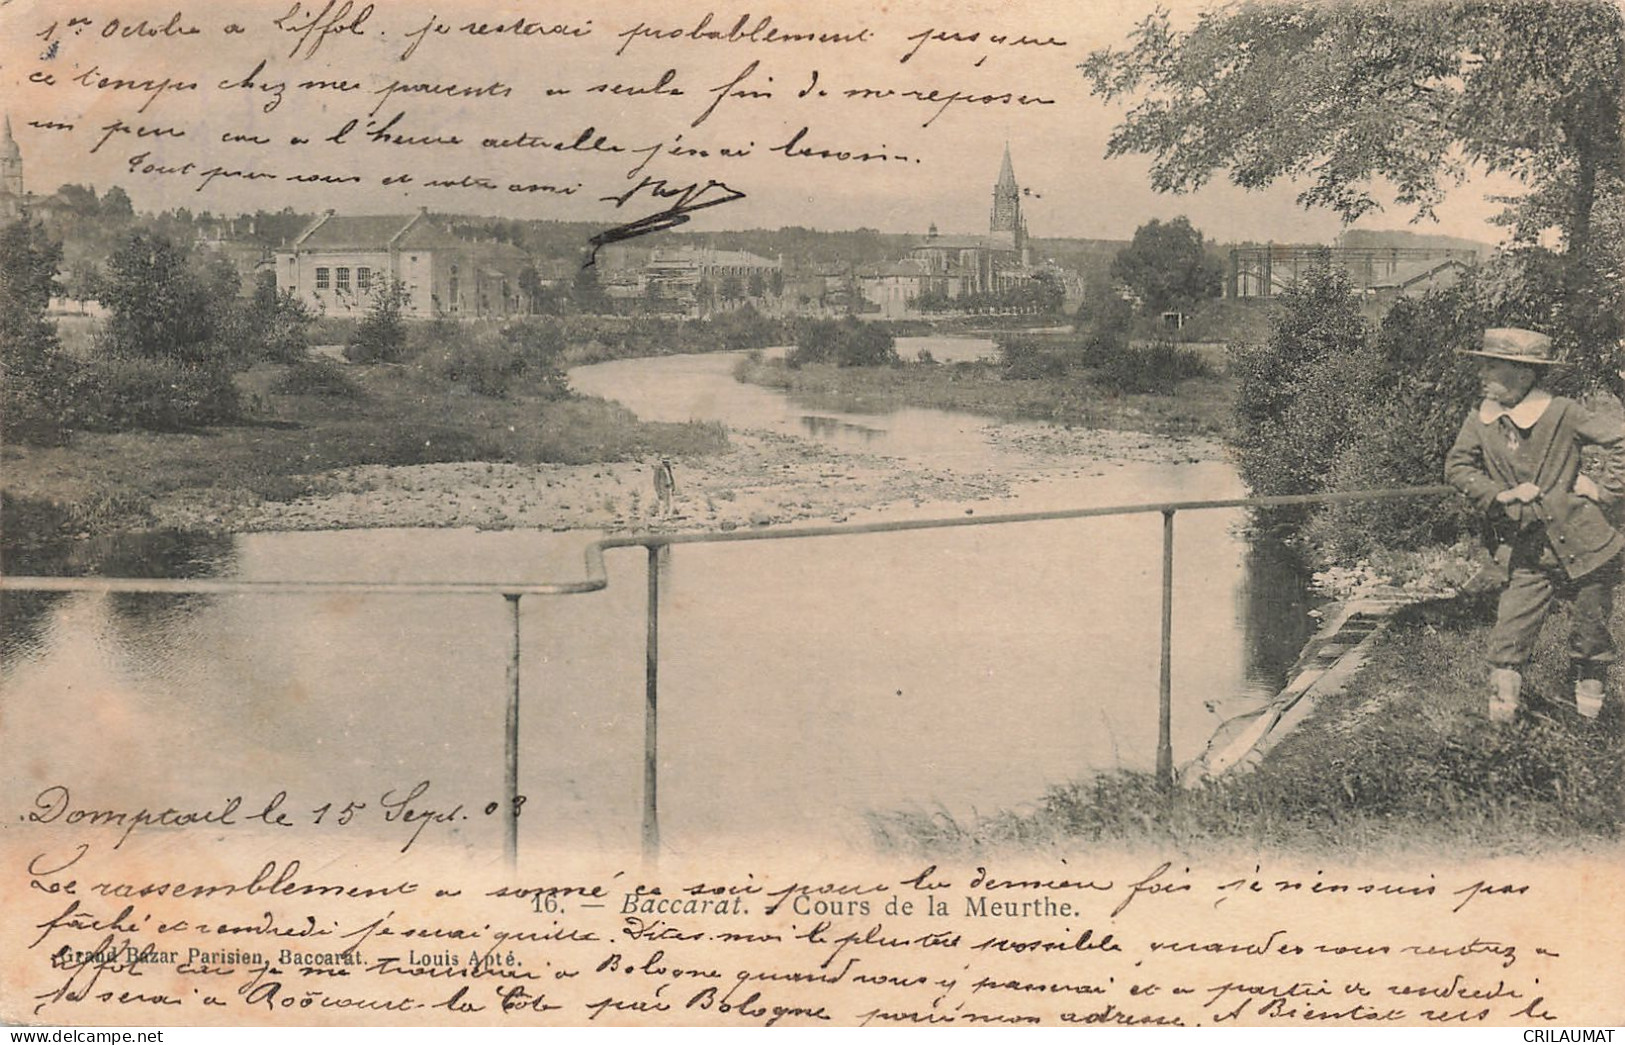 1er Octobre a Liffol. je resterai probablement jusque
ce temps chez mes parents a seule fin de me reposer
un peu car a l'heure actuelle j'en ai besoin.
Tout pour vous et votre ami
Domptail le 15 Sept. 03
Le rassemblement a sonné ce soir pour la dernière fois je n'en suis pas
16. — Baccarat. - Cours de la Meurthe.
fâché et vendredi je serai quitte. Dites-moi le plus tôt possible quand vous rentrez a
Grand Bazar Parisien, Baccarat. — Louis Apté.
Liffol car je me trouverai a Bologne quand vous y passerai et a partir de vendredi
je serai a Roôcourt-la Côte par Bologne pour mon adresse. A Bientot vers le
CRILAUMAT